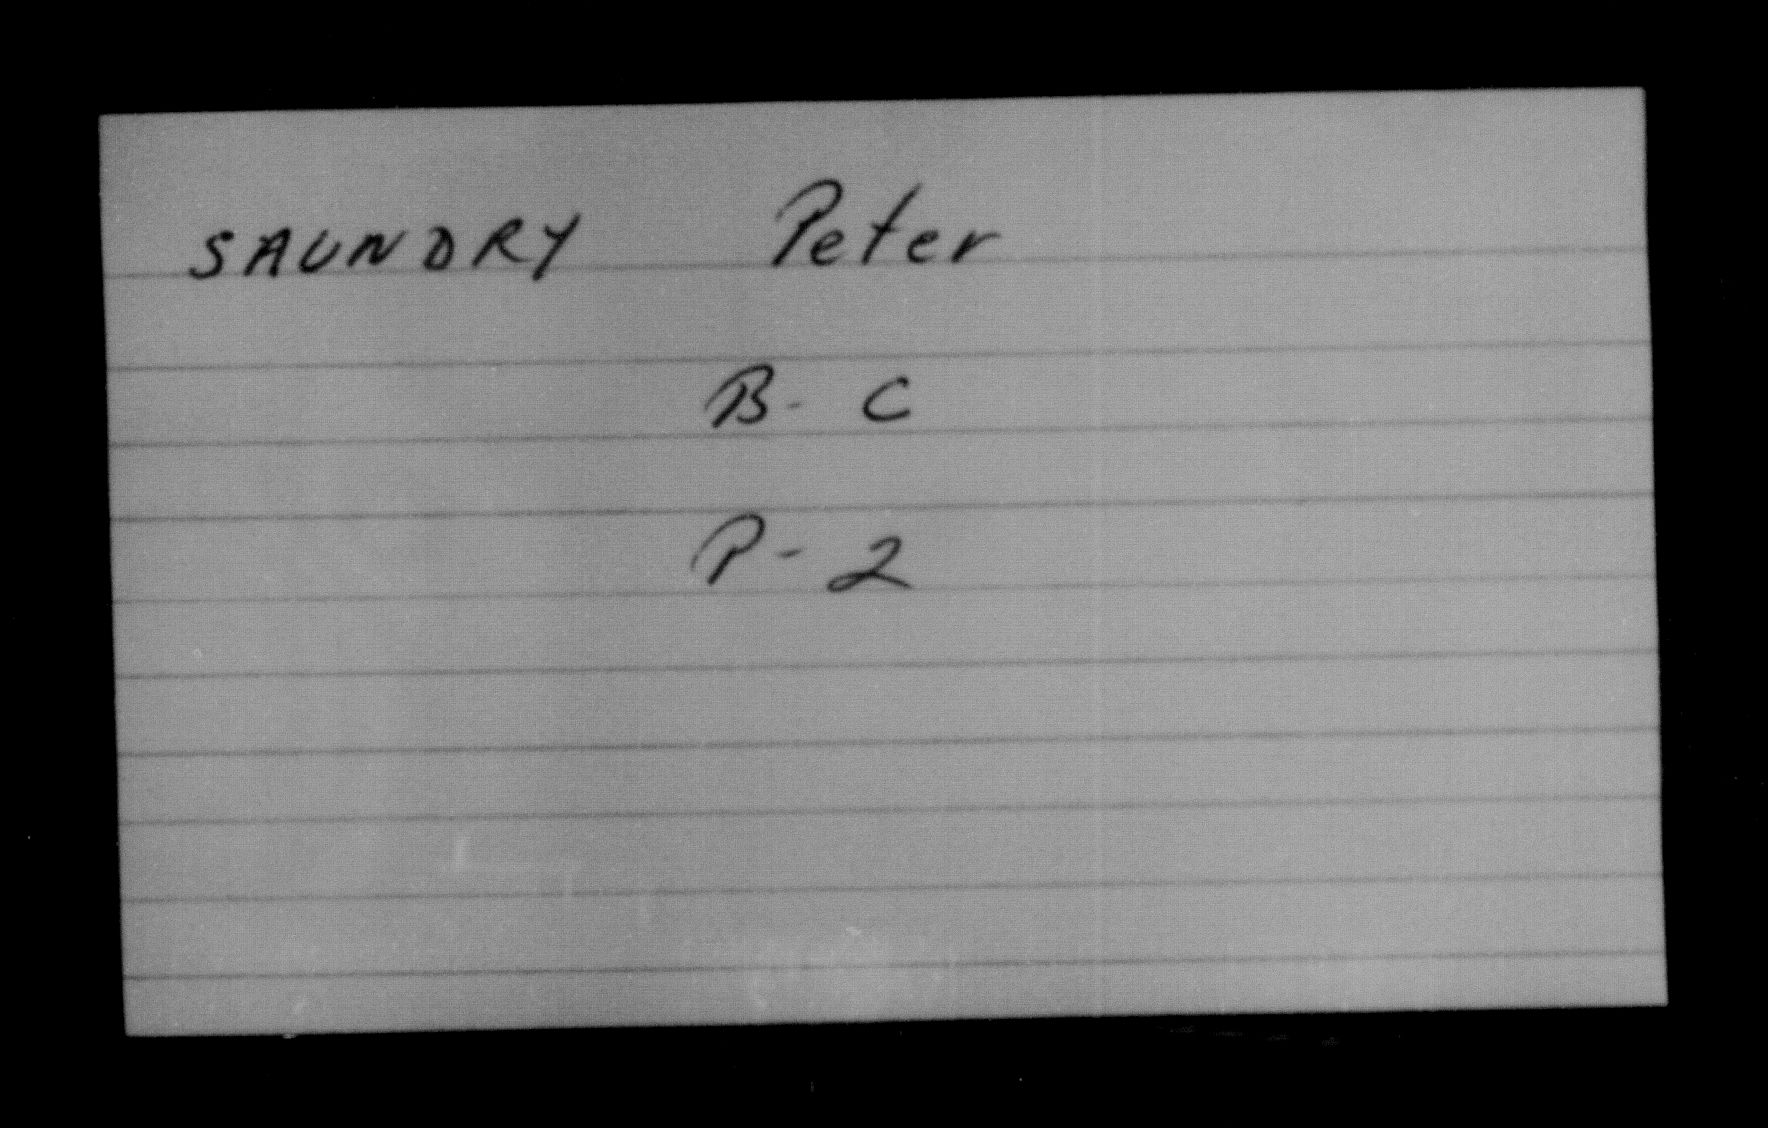 SAUNDRY Peter
B- C
P- 2